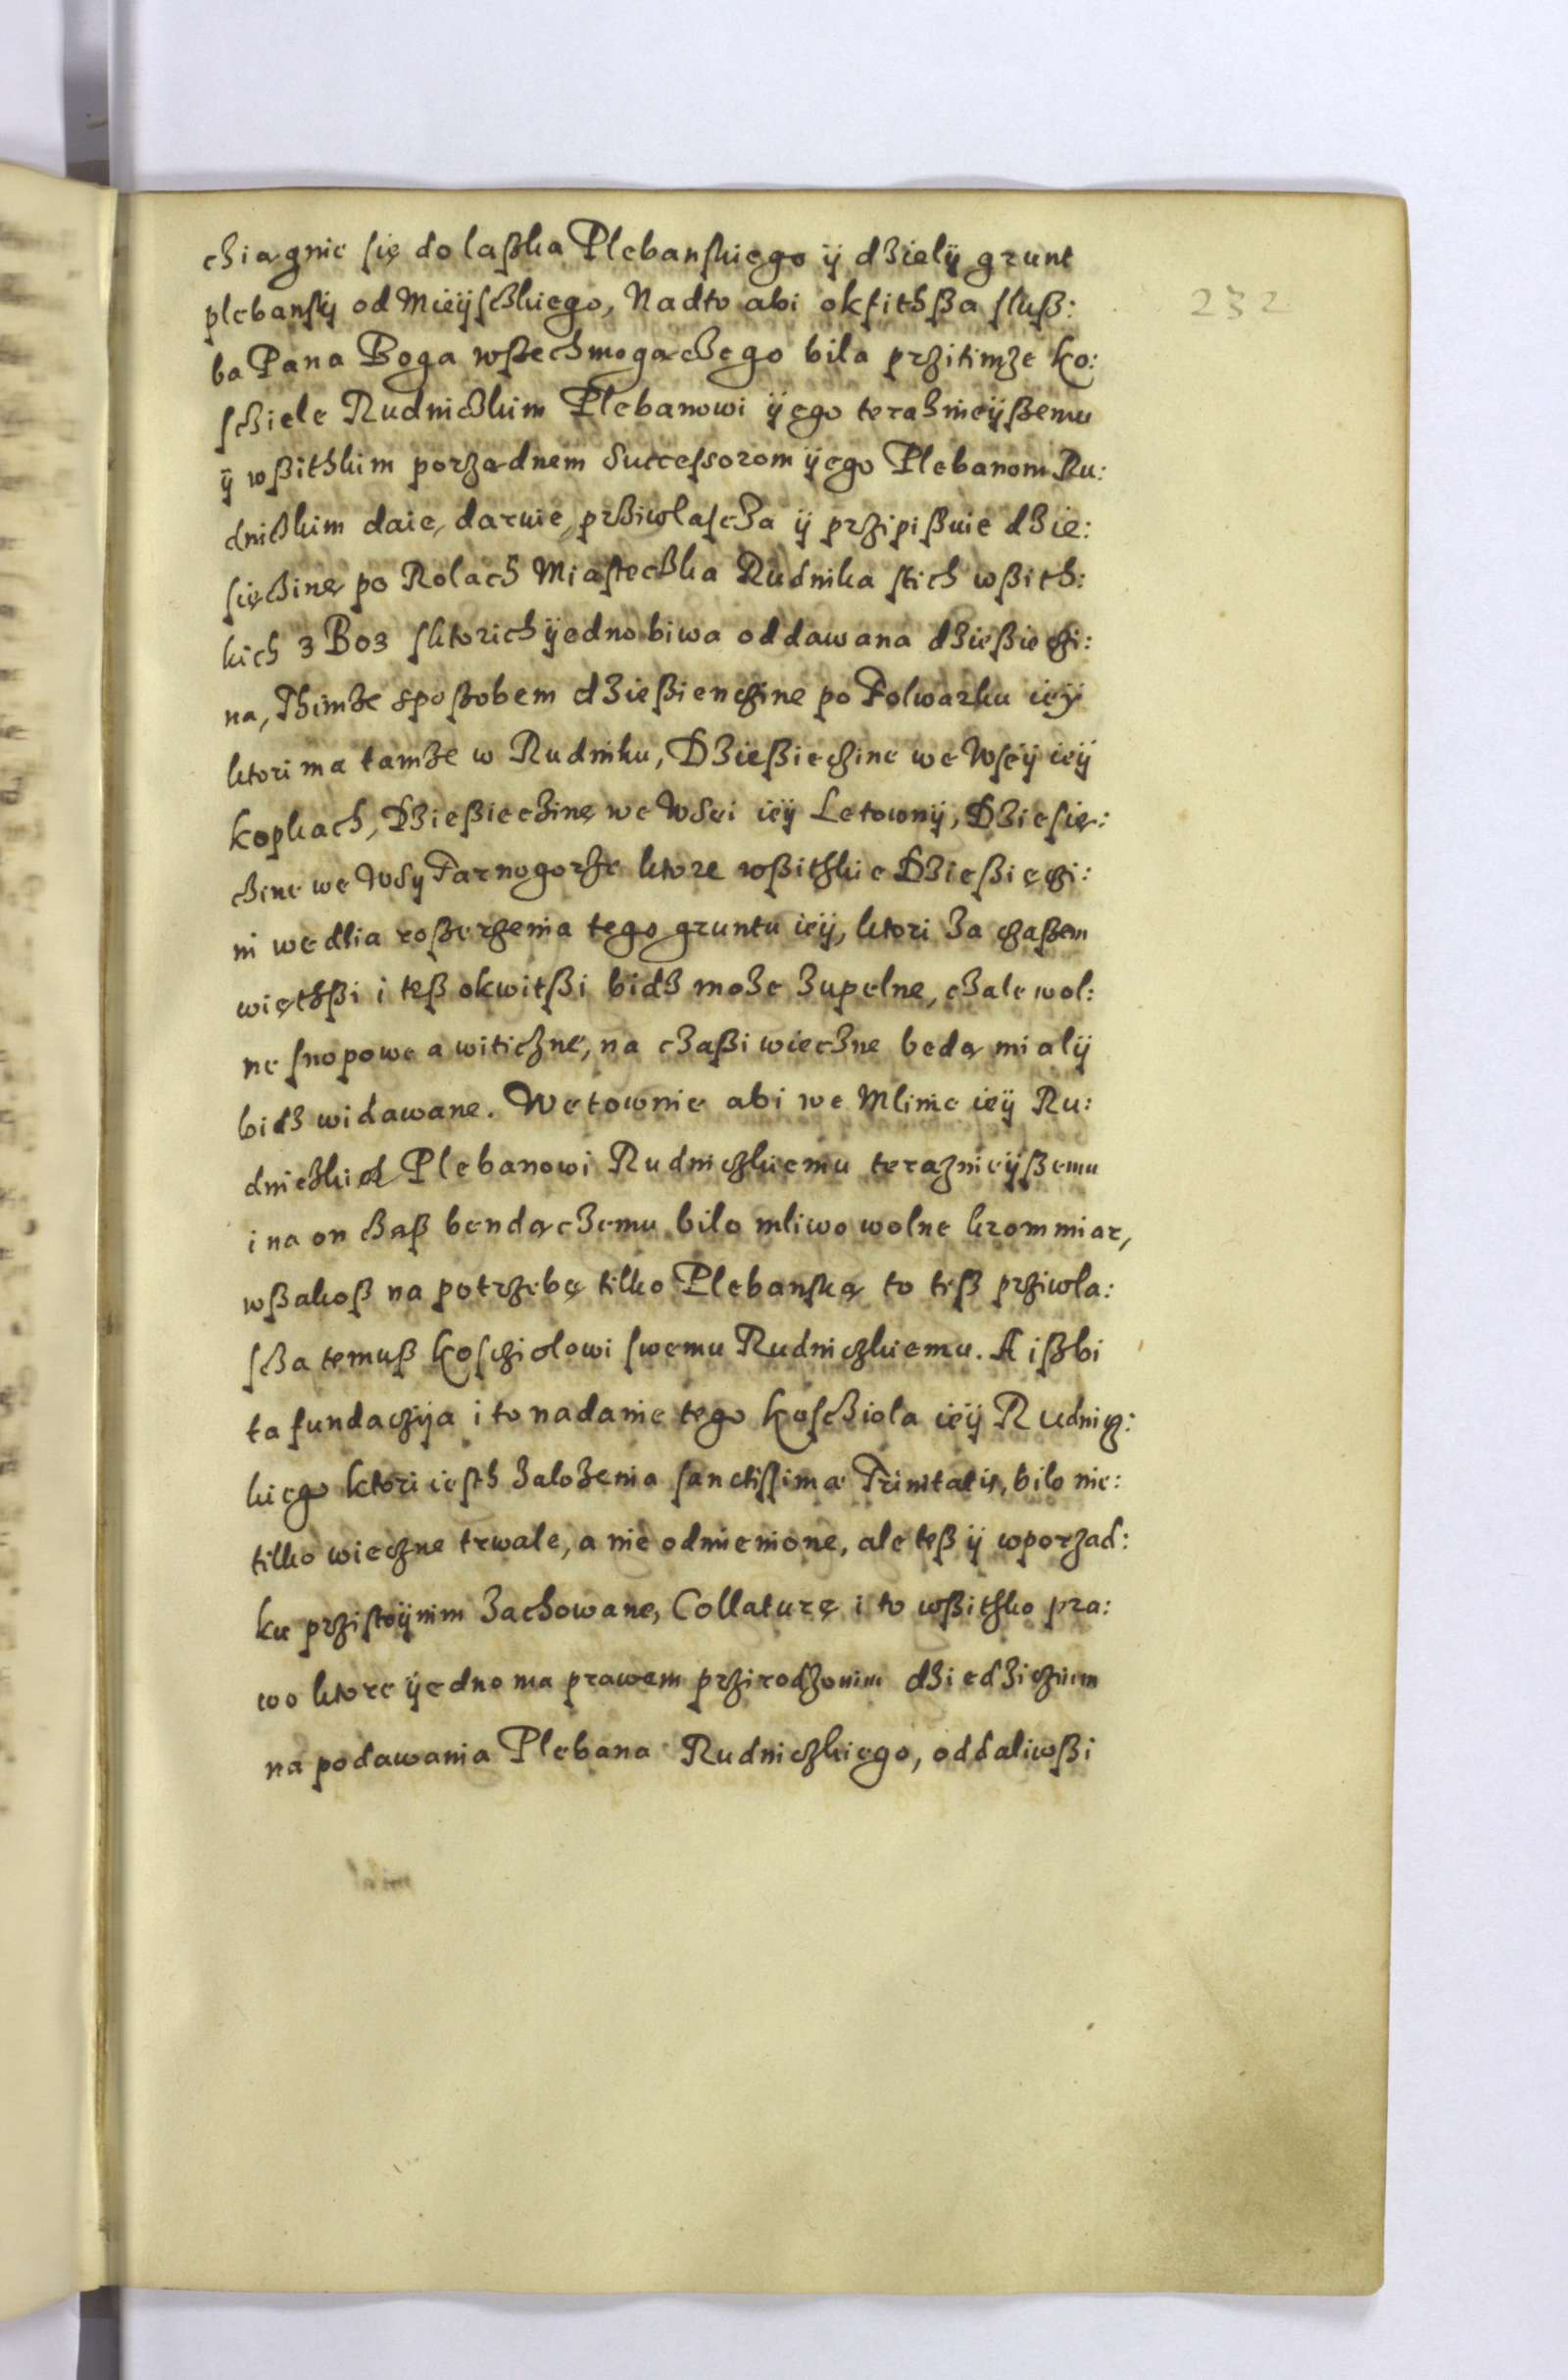 cziągnie się do laßka Plebanskiego ÿ dzielÿ grunt
plebanskÿ od Mieÿsczkiego, Nadto abi okfithßa sluß:
232
ba Pana Boga wßechmogączego bila przitimze ko:
scziele Rudniczkim Plebanowi ÿego teraznieÿßemu
ÿ wßithkim porządnem Successorom ÿego Plebanom Ru:
dnißkim daie, daruie, prziwlascza ÿ przipißuie dzie:
sięczinę po Rolach Miasteczka Rudnika stich wßith:
kich z Boz sktorich ÿedno biwa oddawana dzießieczi:
na, Thimze sposobem dzießienczine po Folwarku ieÿ
ktori ma tamze w Rudniku, Dzießieczine we Wseÿ ieÿ
kopkach, Dzießieczinę we Wsei ieÿ Letownÿ, Dziesię:
czine we Wsy Tarnogorze ktore wßithkie Dzießięczi:
ni wedlia roßerzenia tego gruntu ieÿ, ktori za czaßem
więthßi i teß okwitßi bidz moze zupelne, czale wol:
ne snopowe a witiczne, na czaßi wieczne będą mialÿ
bidz widawane. Wetownie abi we Mlinie ieÿ Ru:
dniczkich Plebanowi Rudniczkiemu teraznieÿßemu
i na on czaß bendączemu bilo mliwo wolne krom miar,
wßakoß na potrzebę tilko Plebanską to teß prziwla:
scza temuß kosciolowi swemu Rudniczkiemu. A ißbi
ta fundaczija i to nadanie tego kosciola ieÿ Rudnicz:
kiego ktori iesth zalozenia sanctissimæ Trinitatis, bilo nie:
tilko wieczne trwale, a nie odmienione, ale teß ÿ wporząd:
ku przistoÿnim zachowane, Collaturę i to wßithko pra:
wo ktore ÿedno ma prawem przirodzonim dziedzicznim
na podawania Plebana Rudniczkiego, oddaliwßi